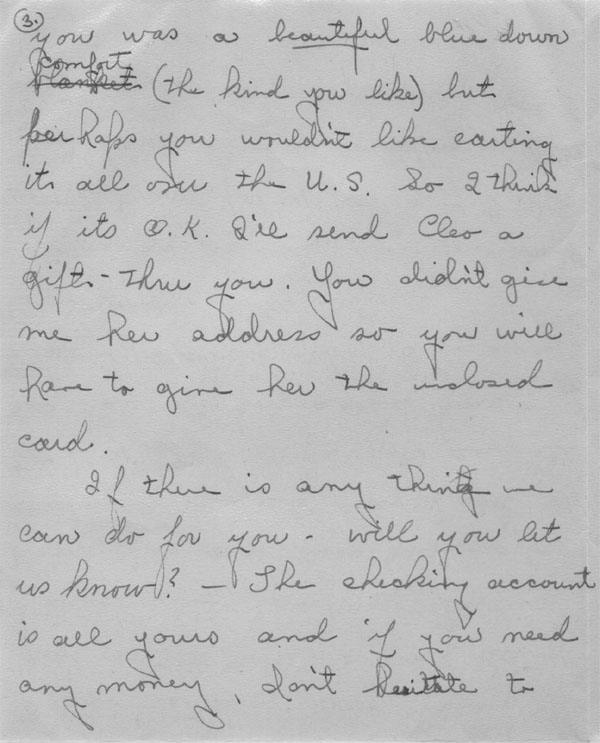 3.
you was a beautiful blue down
comfort
blanket (the kind you like) but
perhaps you wouldn't like carting
it all over the U.S. So I think
if its O.K. I'll send Cleo a
gift - thru you. You didn't give
me her address so you will
have to give her the inclosed
card.
If there is any thing we
can do for you - will you let
us know? - The checking account
is all yours and if you need
any money, don't hesitate to